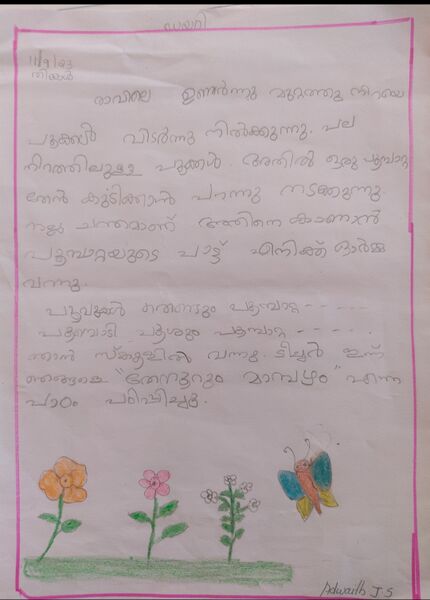 ഡയറി
11/9/23
തിങ്കൾ
രാവിലെ ഉണർന്നു മുറ്റത്തു നിറയെ
പൂക്കൾ വിടർന്നു നിൽക്കുന്നു. പല
നിറത്തിലുള്ള പൂക്കൾ. അതിൽ ഒരു പൂമ്പാറ്റ
തേൻ കുടിക്കാൻ പറന്നു നടക്കുന്നു.
നല്ല ചന്തമാണ് അതിനെ കാണാൻ
പൂമ്പാറ്റയുടെ പാട്ട് എനിക്ക് ഓർമ്മ
വന്നു.
പൂവുകൾ തെണ്ടും പൂമ്പാറ്റ - - - - -
പൂമ്പൊടി പൂശും പൂമ്പാറ്റ - - - - .
ഞാൻ സ്കൂളിൽ വന്നു. ടീച്ചർ ഇന്ന്
ഞങ്ങളെ "തേനൂറും മാമ്പഴം" എന്ന
പാഠം പഠിപ്പിച്ചു.
Adwaith J S